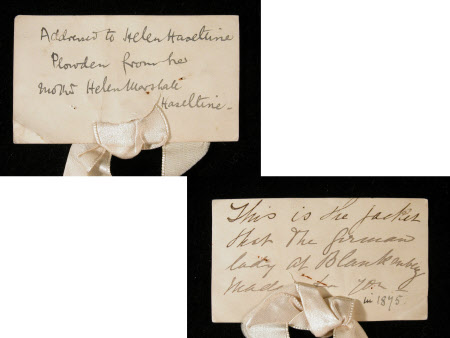 Addressed to Helen Haseltine
Plowden from her
mother Helen Marshall
Haseltine -
This is the jacket
that the german
lady at Blankenberg
made for you
in 1875.